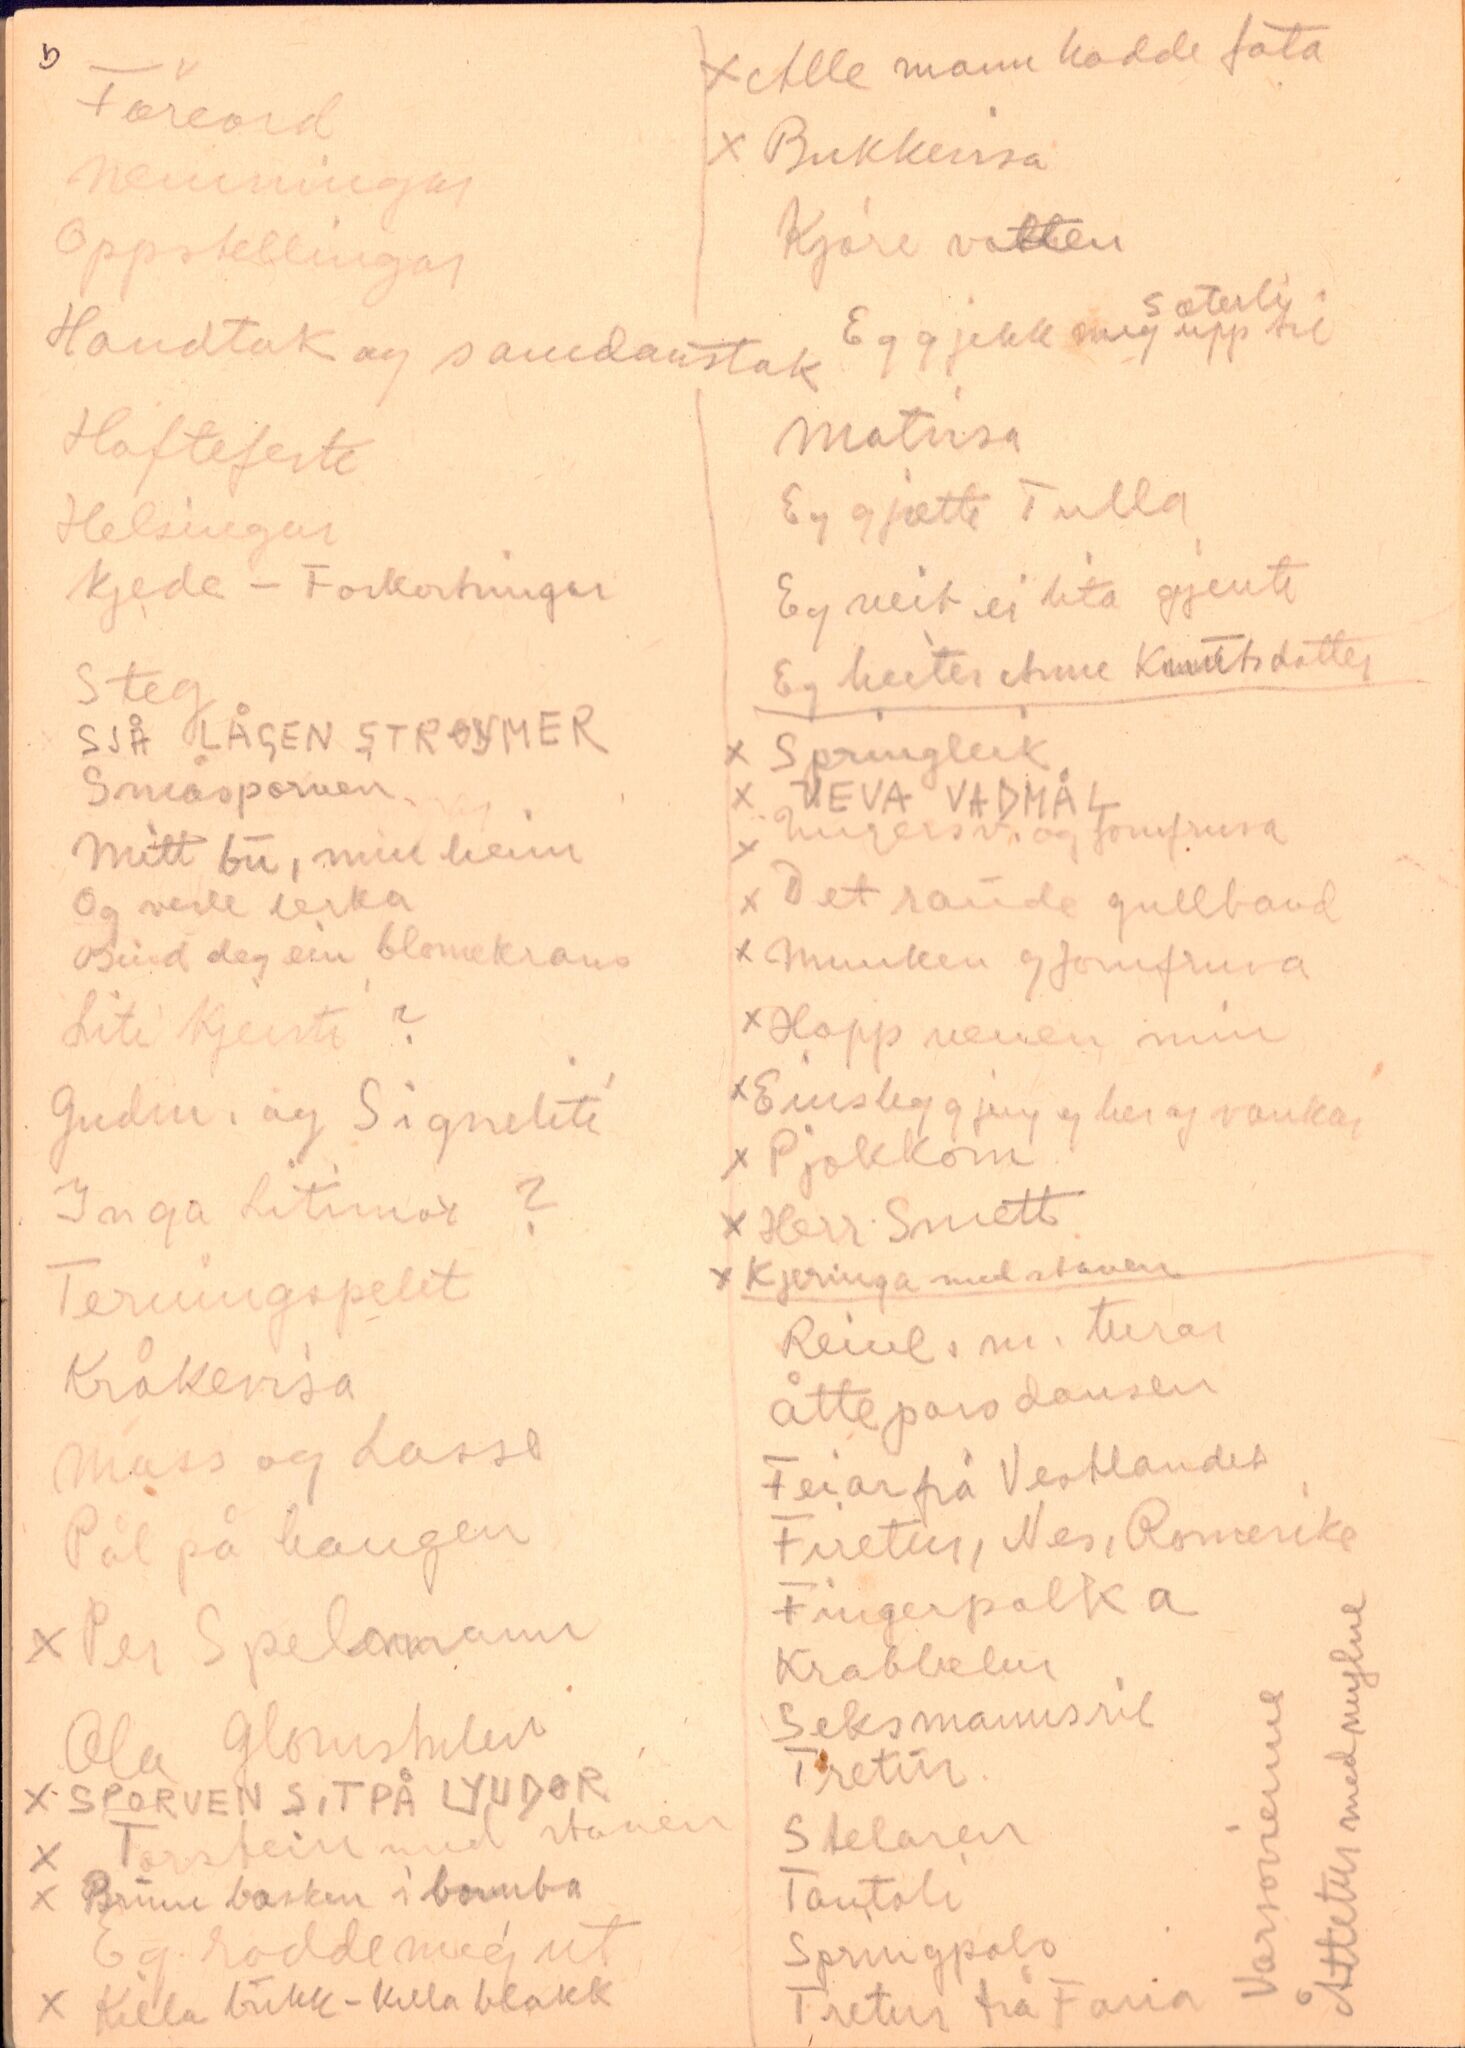 Føreord
Nemningar
Oppstellingar
Handtak og samdanstak
Hoftefeste
Helsingar
Kjede - Forkortningar
Steg
SJÅ LÅGEN STRØYMER
Småsporven
Mitt bu, min heim
Og vesle lerka
Bind deg ein blomekrans
Liti Kjersti ?
Gudm. og Signeliti
Inga Litimor ?
Terningspelet
Kråkevisa
Mass og Lasse
Pål på haugen
x Per Spelmann
Ola Glomstulen
x SPORVEN SIT PÅ LYNDOR
x Torstein med staven
x Brune basken i bomba
Eg rodde meg ut
x Killa bukk - Killa blakk
x Alle mann hadde fota
x Bukkevisa
Kjøre vatten
Eg gjekk meg upp til
Sæterli
Matvisa
Eg gjætte Tulla
Eg veit ei lita gjente
Eg heiter Anne Knutsdotter
x Springleik
x VEVA VADMÅL
x og Jomfruva
x Det raude gullband
x Munken og Jomfruva
x Hopp venen min
x Einsleg gjeng eg her og vankar
x Pjokkom
x Herr Smett
x Kjeringa med staven
Reinl. m. turar
Åtteparsdansen
Feiar frå Vestlandet
Firetur, Nes, Romerike
Fingerpolka
Krabbelur
Seksmannsril
Tretur
Stelaren
Tantoli
Springpols
Tretur frå Fana
Varsovienne
Åttetur med mylne